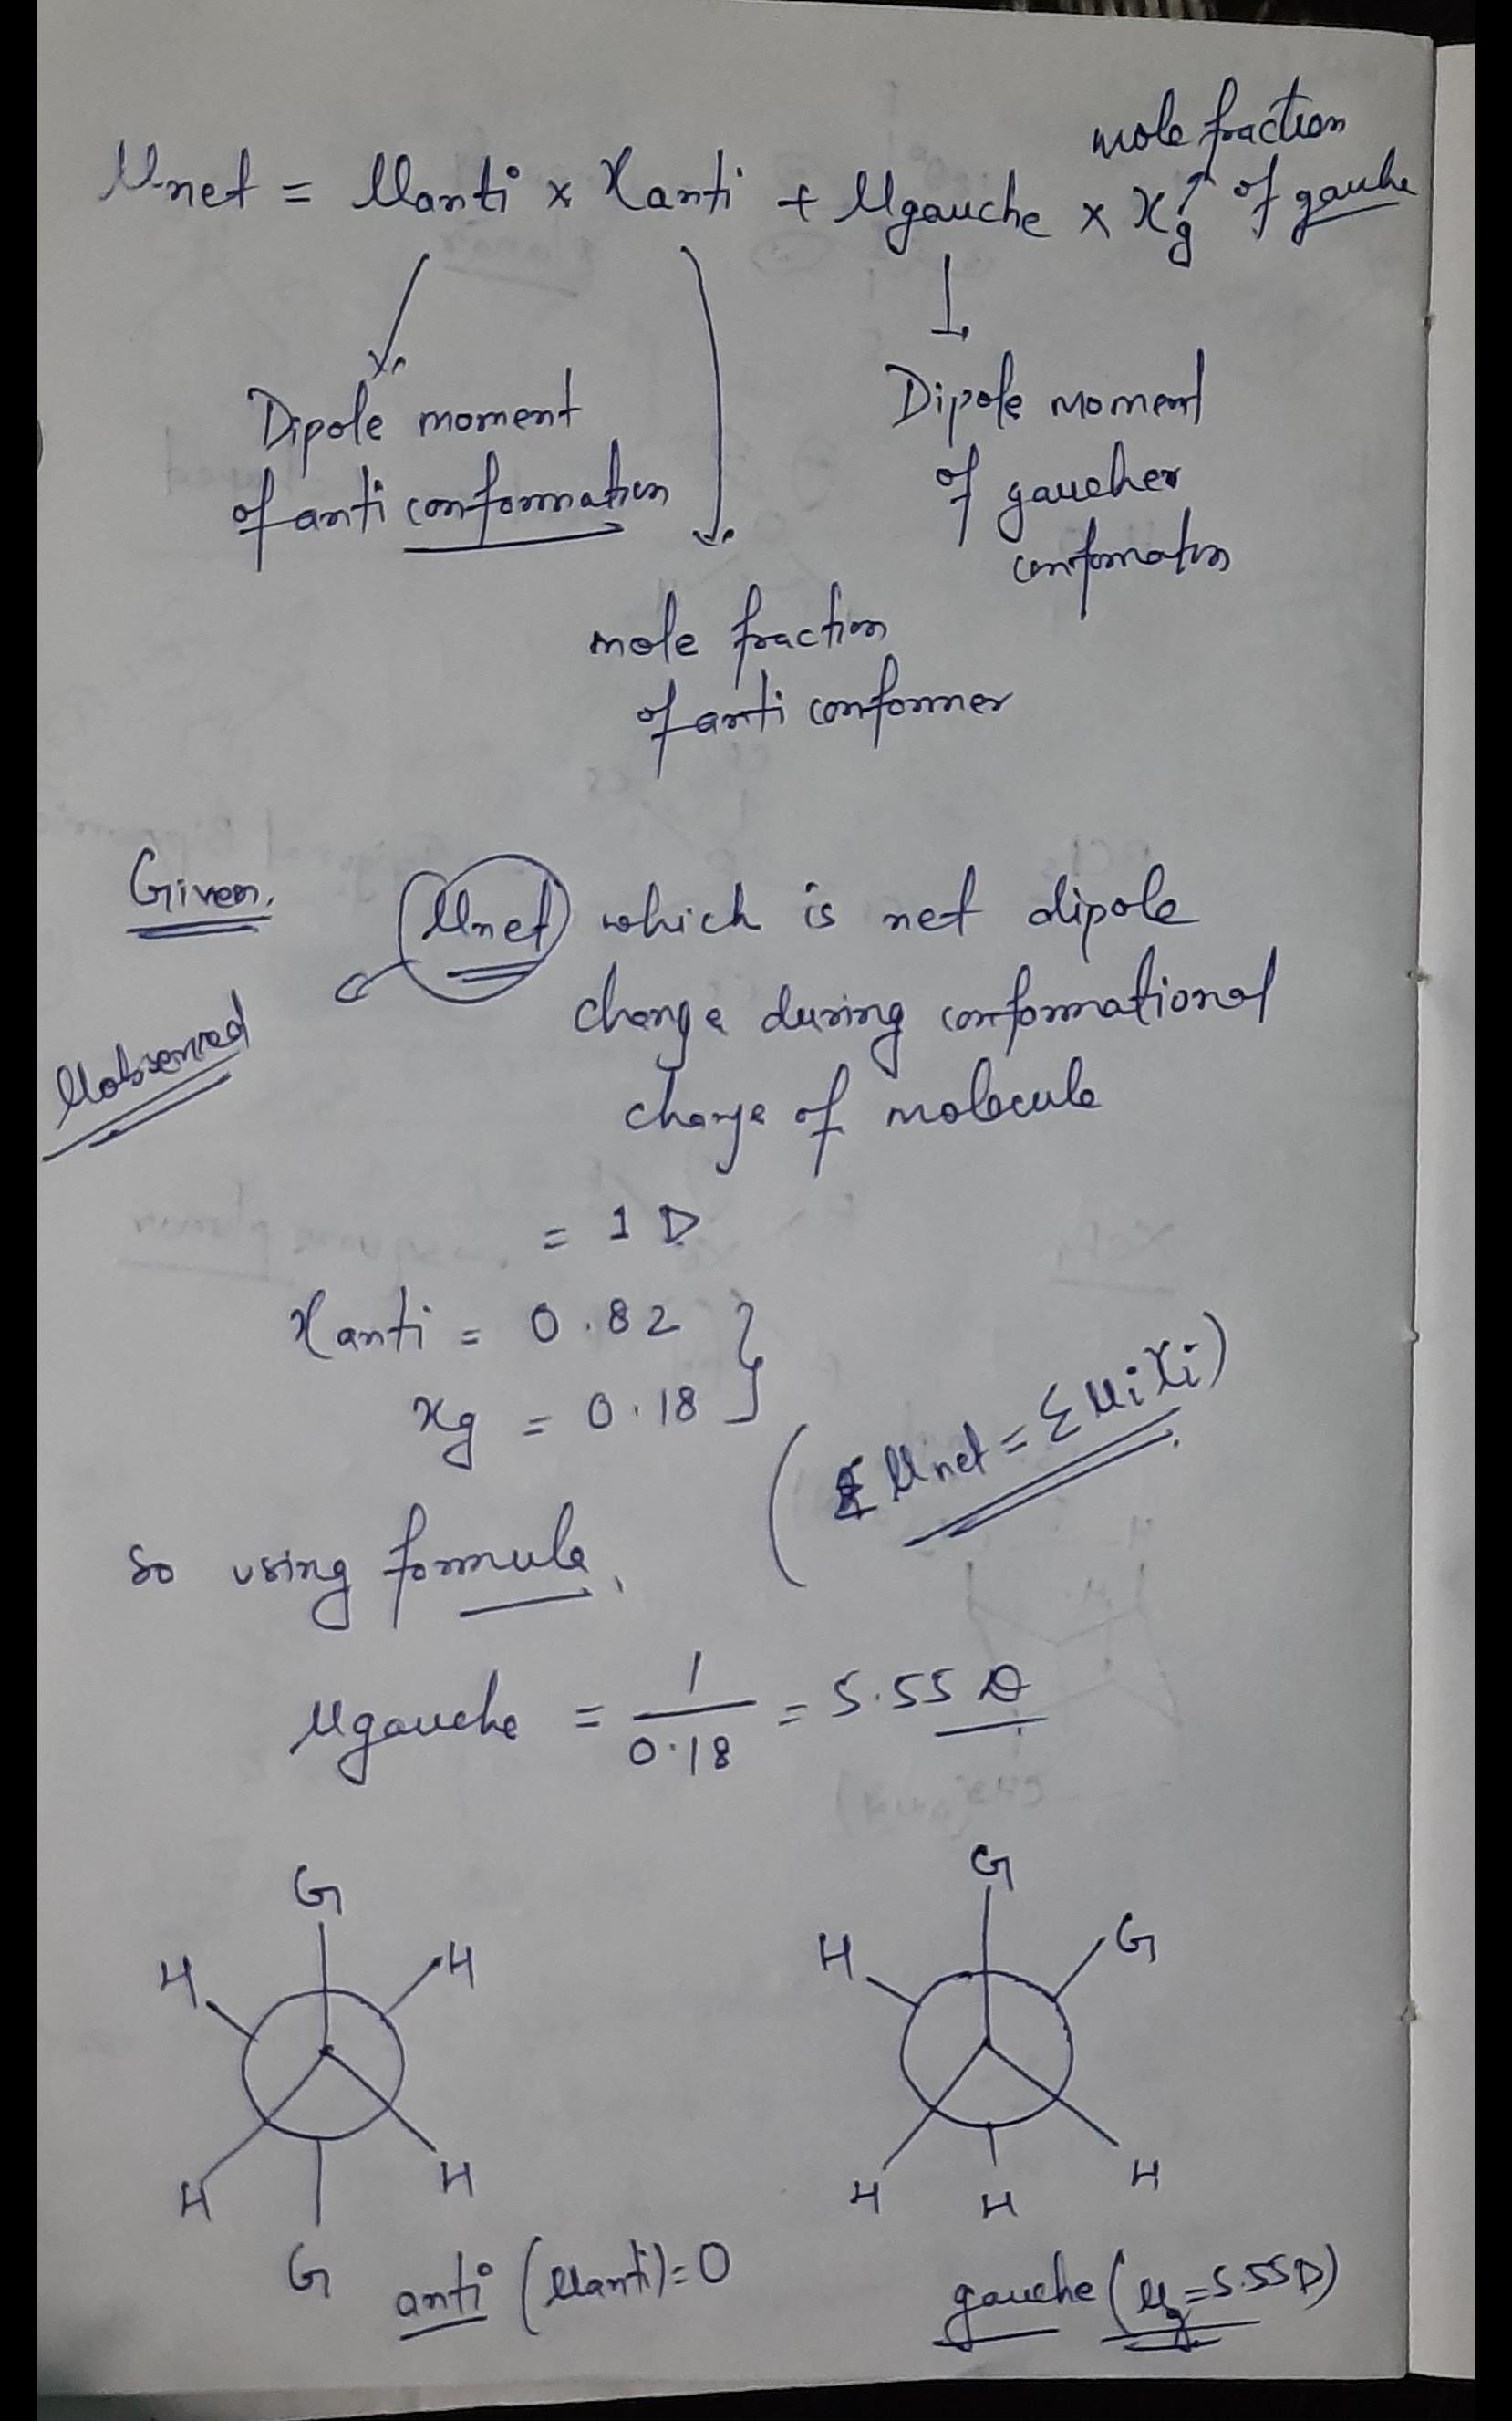 mole fraction
μnet = μanti × xanti + μgauche × xg of gauche
Dipole moment
of anti conformation
Dipole moment
of gaucher
conformation
mole fraction
of anti conformer
Given,
μnet which is net dipole
change during conformational
change of molecule
μobserved
= 1 D
xanti = 0.82
xg = 0.18
(μnet = Σμixi)
so using formula,
μgauche = 1/0.18 = 5.55 D
G
H H
H H
G
anti (μanti) = 0
G
H G
H H
H
gauche (μg = 5.55D)